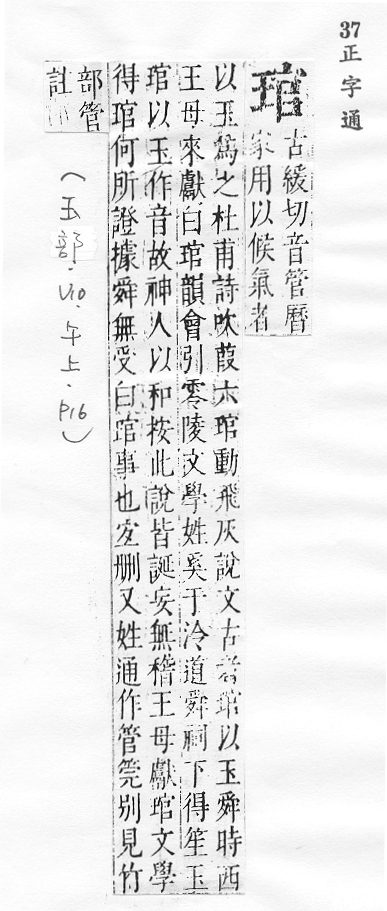 37正字通
琯
古緩切音管曆
家用以候氣者
以玉爲之杜甫詩吹葭六琯動飛灰說文古者琯以玉舜時西
王母來獻白琯韻會引零陵文學姓奚于泠道舜祠下得笙玉
琯以玉作音故神人以和按此說皆誕妄無稽王母獻琯文學
得琯何所證據舜無受白琯事也宐刪又姓通作管筦別見竹
部管
註
(玉部.V10.午上.P16)